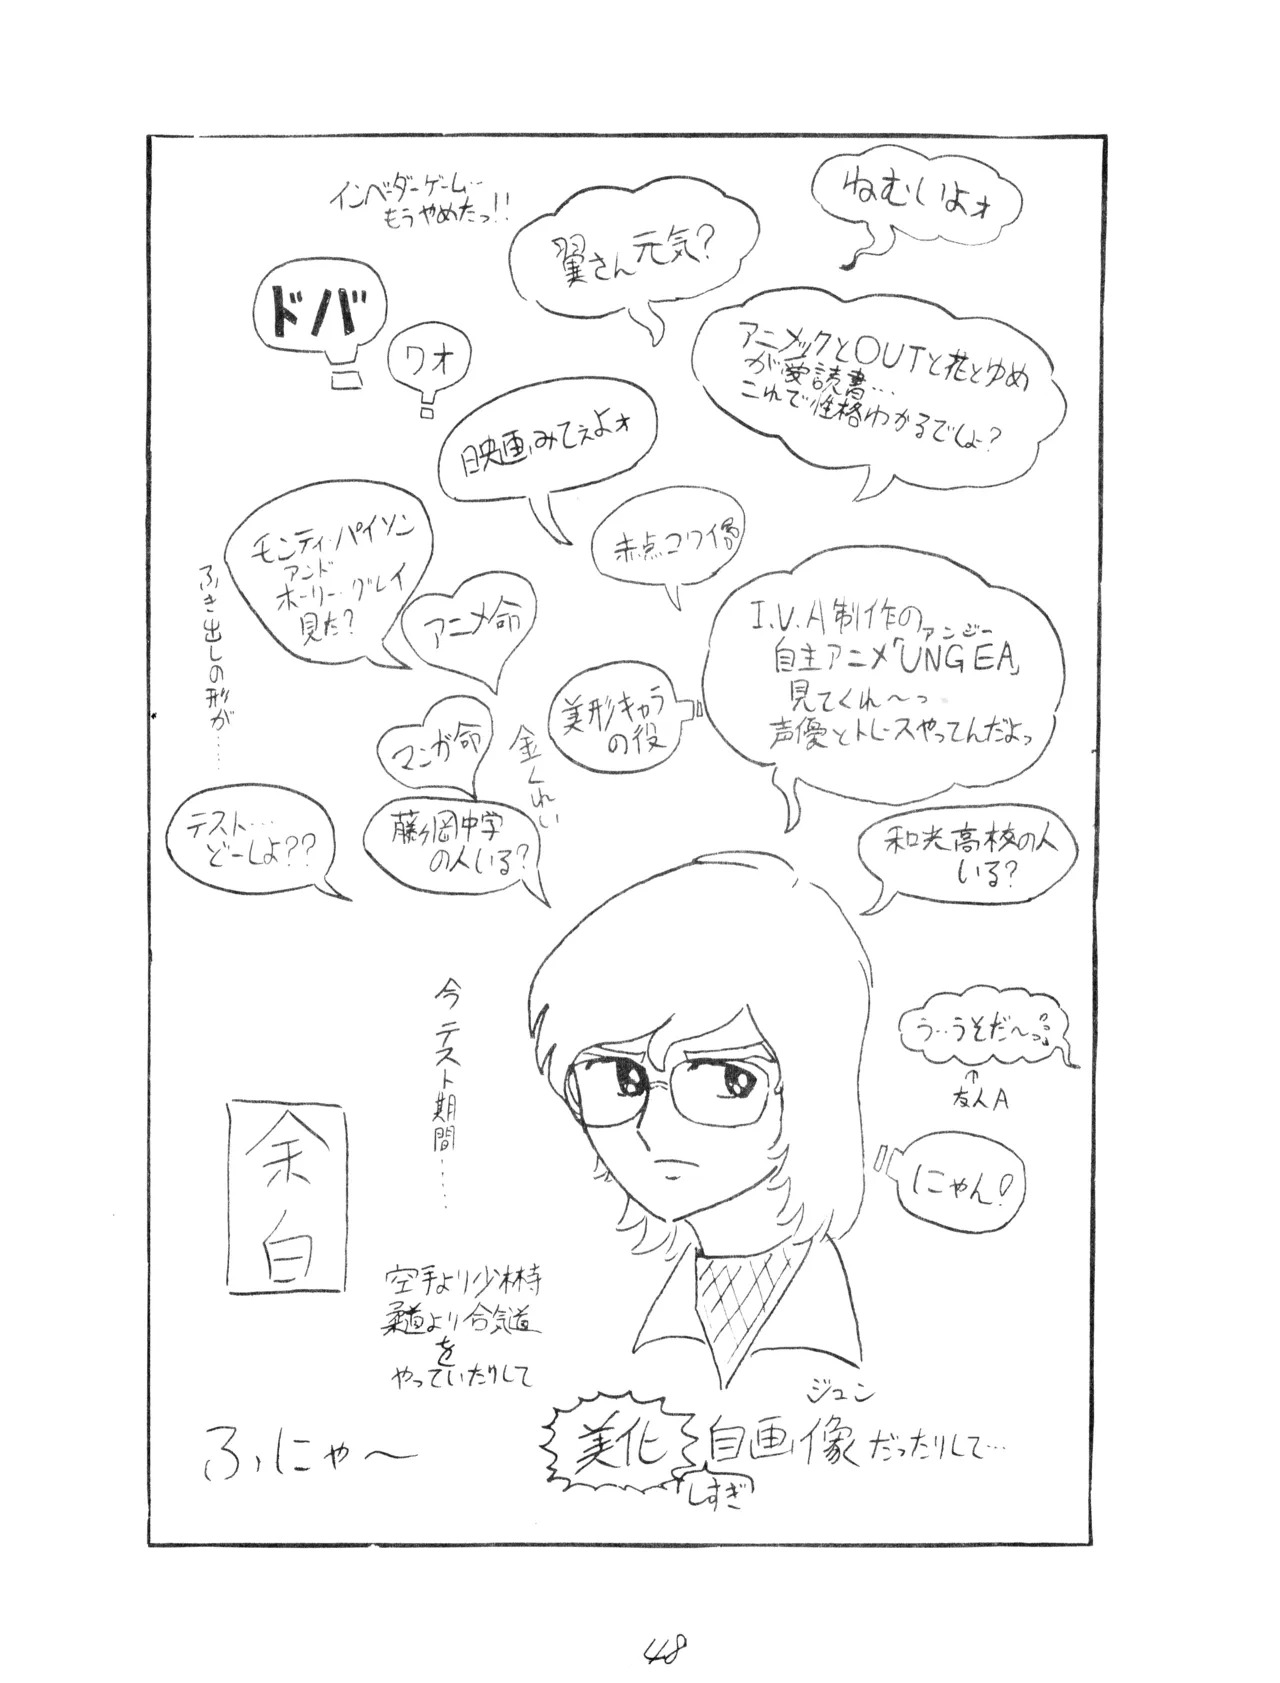 ねむいよォ
インベーダーゲーム…
もうやめたっ!!
翼さん元気?
ドバ
ワオ
アニメックとOUTと花とゆめ
が愛読書…
これで性格わかるでしょ?
映画みてぇよォ
赤点コワイ
モンティ・パイソン
アンド
ホーリー・グレイ
見た?
ふき出しの形が……
アニメ命
I.V.A制作の
アンジー
自主アニメ「UNGEA」
見てくれ〜っ
声優とトレースやってんだよっ
美形キャラ
の役
マンガ命
金くれい
テスト…
どーしよ??
藤ヶ岡中学
の人いる?
和光高校の人
いる?
今テスト期間……
う…うそだ〜っ
↑
友人A
にゃん!
余白
空手より少林寺
柔道より合気道
を
やっていたりして
ジュン
美化自画像だったりして…
しすぎ
ふにゃ〜
48